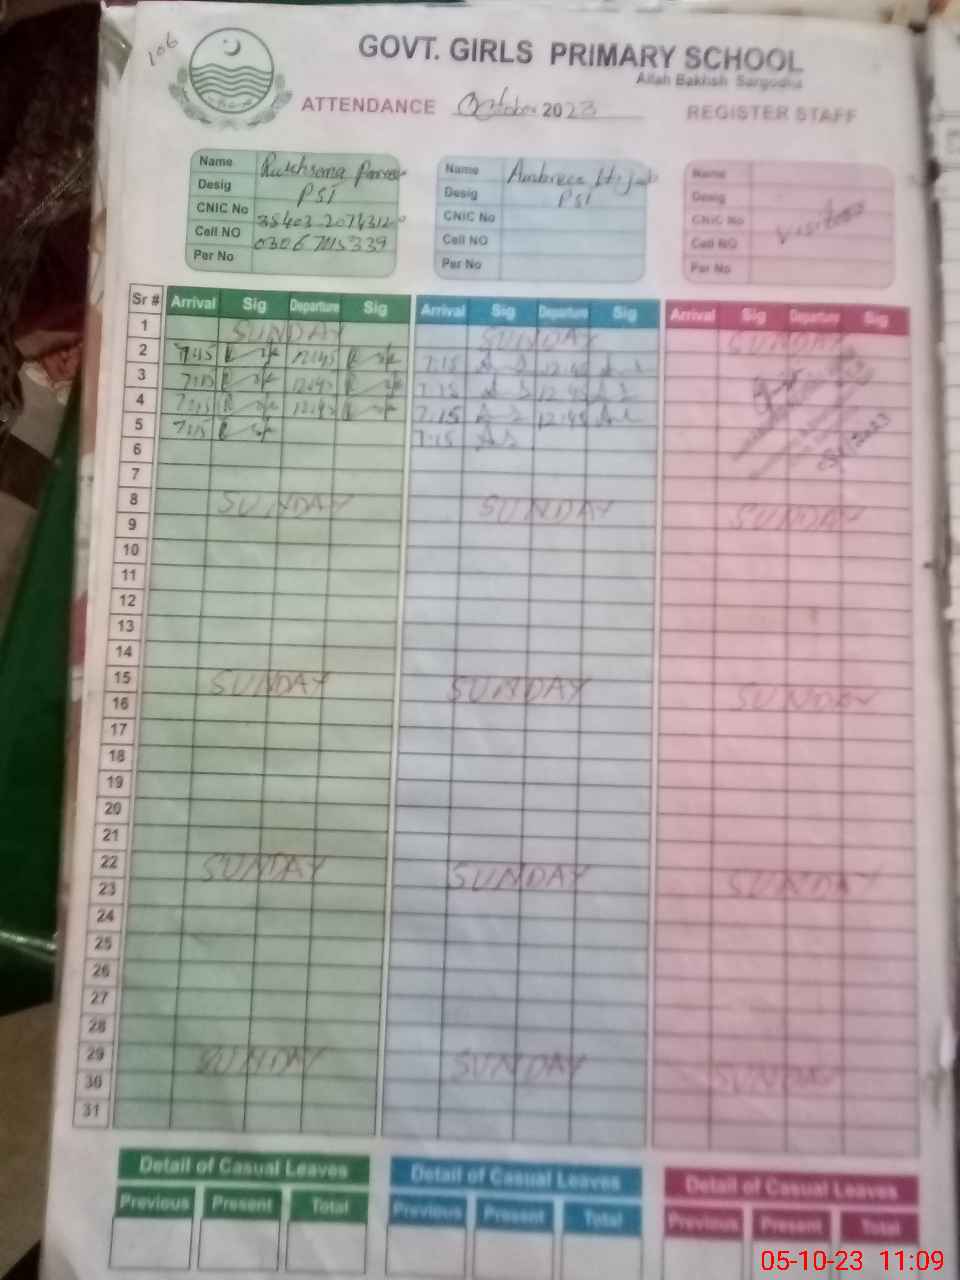 106
GOVT. GIRLS PRIMARY SCHOOL
Allah Bakhsh Sargodha
ATTENDANCE October 2023 REGISTER STAFF
Name Name Ambreen Hijab Name
Desig PST Desig PST Desig
CNIC No CNIC No CNIC No Visitors
Cell NO 03067015339 Cell NO Cell NO
Per No Per No Per No
Sr # Arrival Sig Departure Sig Arrival Sig Departure Sig Arrival Sig Departure Sig
1 SUNDAY SUNDAY SUNDAY
2 7:15 12:45 7:15 12:45
3 7:15 12:45 7:15 12:45
4 7:15 12:45 7:15 12:45
5 7:15 7:15
6
7
8 SUNDAY SUNDAY SUNDAY
9
10
11
12
13
14
15 SUNDAY SUNDAY SUNDAY
16
17
18
19
20
21
22 SUNDAY SUNDAY SUNDAY
23
24
25
26
27
28
29 SUNDAY SUNDAY SUNDAY
30
31
Detail of Casual Leaves Detail of Casual Leaves Detail of Casual Leaves
Previous Present Total Previous Present Total Previous Present Total
05-10-23 11:09